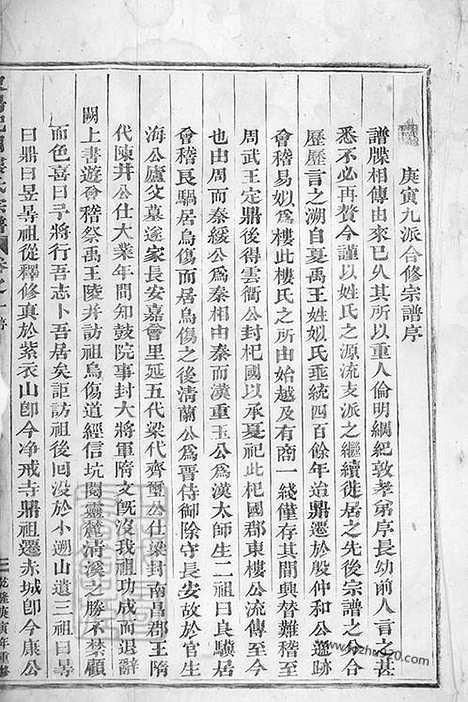 庚寅九派合修宗譜序
譜牒相傳由來已久其所以重人倫明綱紀敦孝弟序長幼前人言之甚
悉不必再贅今謹以姓氏之源流支派之繼續徙居之先後宗譜之分合
歷歷言之溯自夏禹王姓姒氏垂統四百餘年迨鼎遷於殷仲和公遯跡
會稽易姒爲樓此樓氏之所由始越及有商一綫僅存其間興替難稽至
周武王定鼎後得雲衢公封杞國以承夏祀此杞國郡東樓公流傳至今
也由周而秦綏公爲秦相由秦而漢重玉公爲漢太師生二祖曰良驥居
會稽良騆居烏傷居烏傷之後清蘭公爲晉侍御除守長安故於官生
海公廬父墓遂家長安嘉會里延五代梁代齊璽公仕梁封南昌郡王隋
代陳井公仕大業年間知鼓院事封大將軍隋文旣沒我祖功成而退辭
闕上書遊會稽祭禹王陵并訪祖烏傷道經信坑閱靈麓清溪之勝不禁顧
而色喜曰予將行吾志卜吾居矣詎訪祖後回沒於小溯山遺三祖曰昺
曰鼎曰昱昺祖從釋修真於紫衣山卽今净戒寺鼎祖遷赤城卽今康公
宗譜 卷之一 序
三 乾隆庚寅年重修